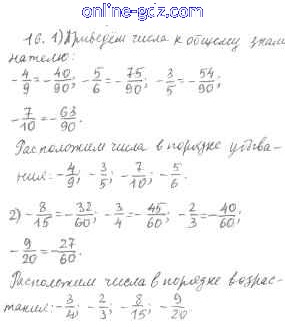 online-gdz.com
16. 1) Приведём числа к общему знаме-
нателю:
-4/9 = -40/90; 5/6 = -75/90; -3/5 = -54/90;
-7/10 = -63/90.
Расположим числа в порядке убыва-
ния: -4/9; -3/5; -7/10; -5/6.
2) -8/15 = -32/60; -3/4 = -45/60; -2/3 = -40/60;
-9/20 = -27/60.
Расположим числа в порядке возрас-
тания: -3/4; -2/3; -8/15; -9/20.